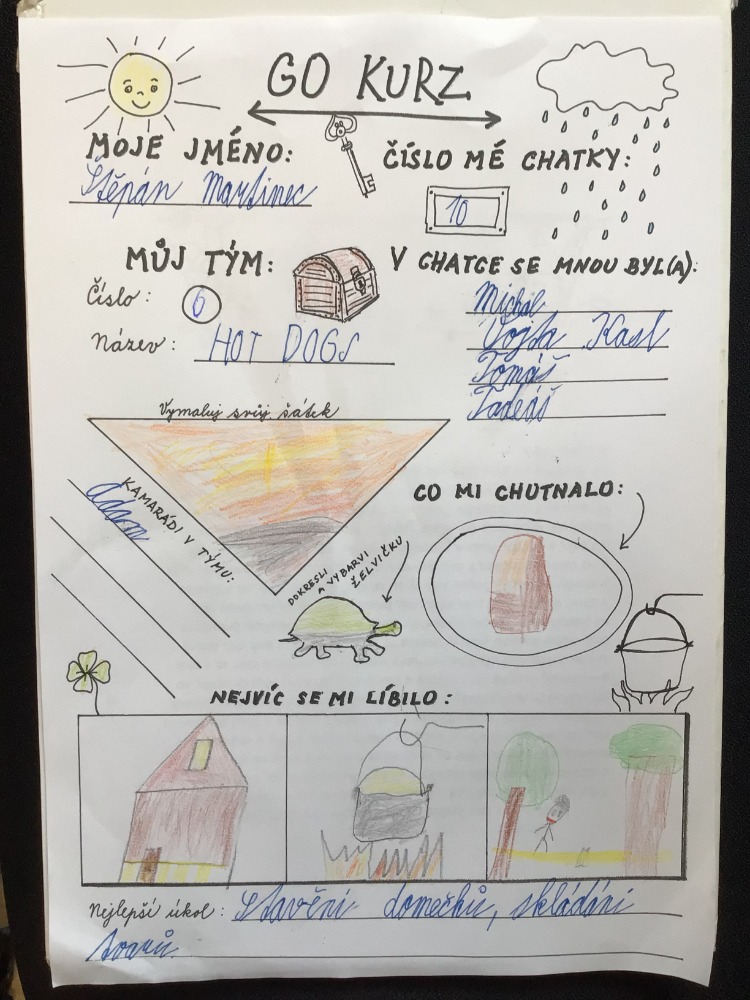 GO KURZ
MOJE JMÉNO:
Štěpán Martinec
ČÍSLO MÉ CHATKY:
10
MŮJ TÝM:
Číslo: 6
Název: HOT DOGS
V CHATCE SE MNOU BYL(A):
Michal
Vojta Kasl
Tomáš
Tadeáš
Vymaluj svůj šátek
KAMARÁDI V TÝMU:
Adam
DOKRESLI
A VYBARVI
ŽELVIČKU
CO MI CHUTNALO:
NEJVÍC SE MI LÍBILO:
Nejlepší úkol: Stavění domečků, skládání
tvarů.